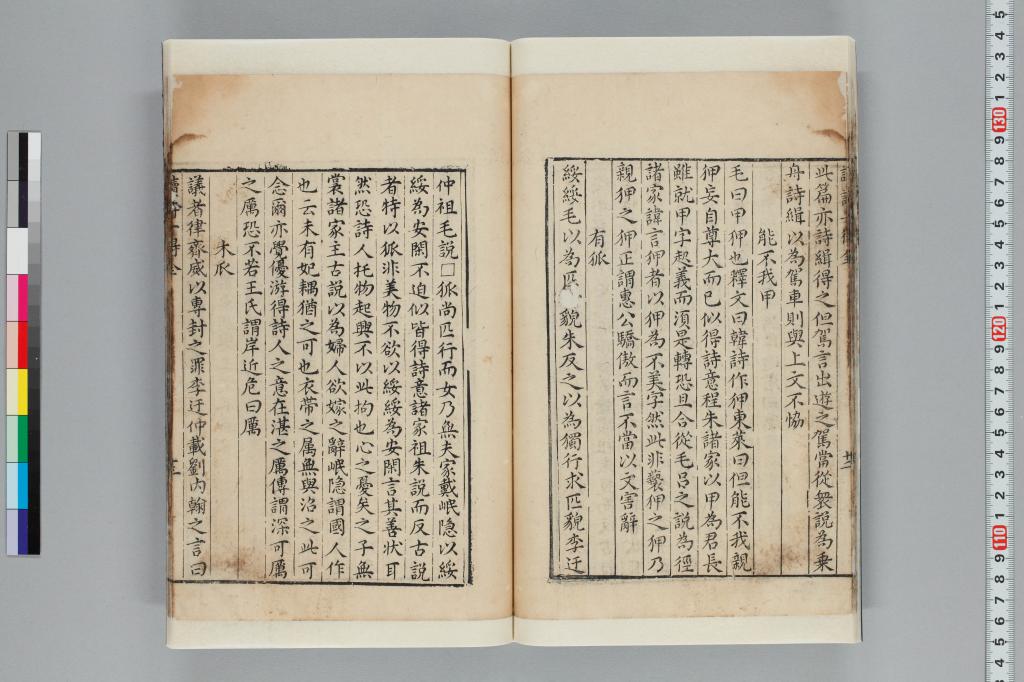 此篇亦詩緝得之但駕言出遊之駕當從衆說為乗
舟詩緝以為駕車則與上文不恊
能不我甲
毛曰甲狎也釋文曰韓詩作狎東萊曰但能不我親
狎妄自尊大而已似得詩意程朱諸家以甲為君長
雖就甲字起義而湏是轉恐且合從毛吕之說為徑
諸家諱言狎者以狎為不美字然此非褻狎之狎乃
親狎之狎正謂惠公驕傲而言不當以文害辭
有狐
綏綏毛以為匹貌朱反之以為獨行求匹貌李迂
仲祖毛說□狐尚匹行而女乃無夫家戴岷隐以綏
綏為安閑不迫似皆得詩意諸家祖朱說而反古說
者特以狐非美物不欲以綏綏為安閑言其善状耳
然恐詩人托物起興不以此拘也心之憂矣之子無
裳諸家主古說以為婦人欲嫁之辭岷隐謂國人作
也云未有妃耦猶之可也衣帶之属無與治之此可
念爾亦覺優游得詩人之意在淇之厲傳謂深可厲
之厲恐不若王氏謂岸近危曰厲
木瓜
議者律齊威以專封之罪李迂仲載劉内翰之言曰